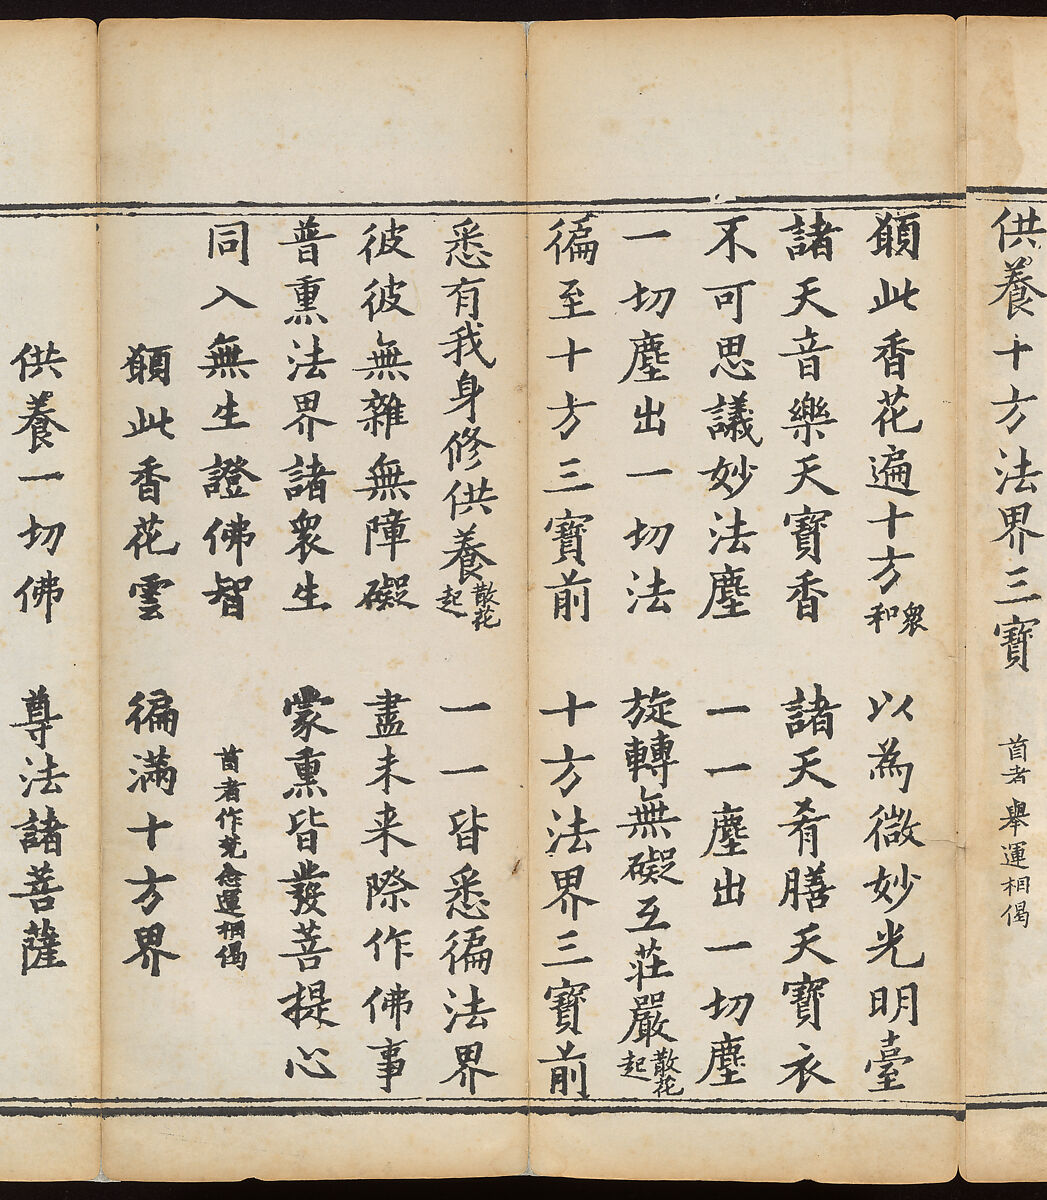 供養十方法界三寶 首者舉運相偈
願此香花遍十方 衆和 以為微妙光明臺
諸天音樂天寶香 諸天肴膳天寶衣
不可思議妙法塵 一一塵出一切塵
一切塵出一切法 旋轉無礙互莊嚴 散花起
徧至十方三寶前 十方法界三寶前
悉有我身修供養 散花起 一一皆悉徧法界
彼彼無雜無障礙 盡未来際作佛事
普熏法界諸衆生 蒙熏皆發菩提心
同入無生證佛智 首者作梵念運相偈
願此香花雲 徧滿十方界
供養一切佛 尊法諸菩薩